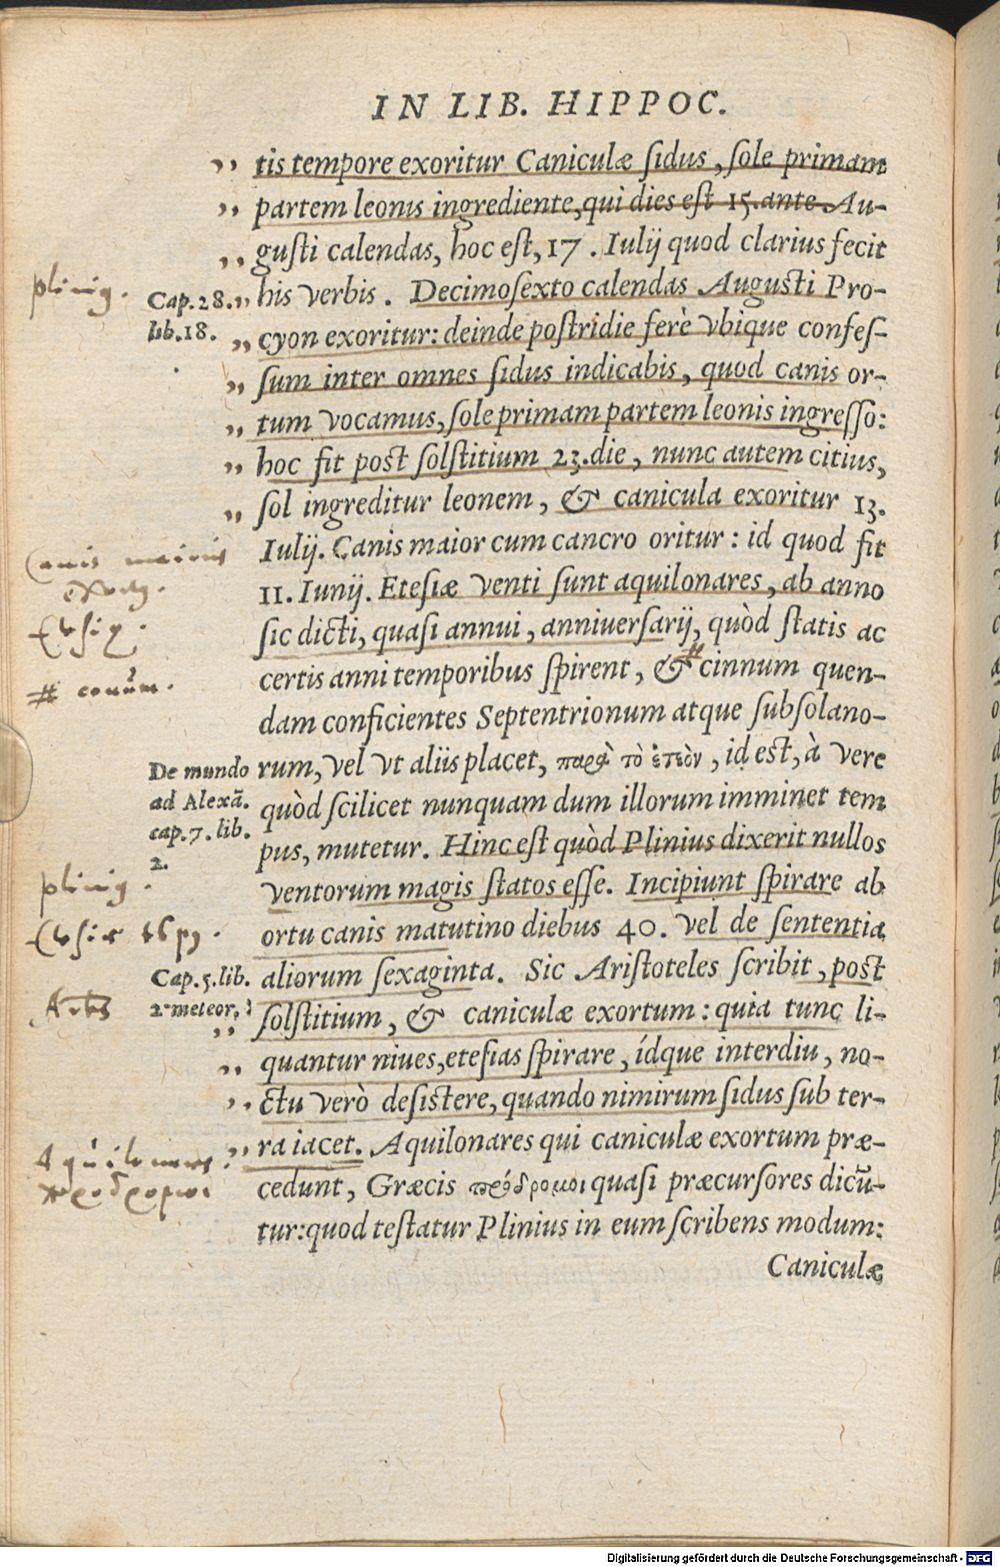 IN LIB. HIPPOC.
„ tis tempore exoritur Caniculæ sidus, sole primam
„ partem leonis ingrediente, qui dies est 15. ante Au-
„ gusti calendas, hoc est, 17. Iulij quod clarius fecit
plinius.
Cap. 28. „ his verbis. Decimosexto calendas Augusti Pro-
lib. 18. „ cyon exoritur: deinde postridie ferè vbique confes-
„ sum inter omnes sidus indicabis, quod canis or-
„ tum vocamus, sole primam partem leonis ingresso:
„ hoc fit post solstitium 23. die, nunc autem citius,
„ sol ingreditur leonem, & canicula exoritur 13.
Canis maioris
Iulij. Canis maior cum cancro oritur: id quod fit
11. Iunij. Etesiæ venti sunt aquilonares, ab anno
sic dicti, quasi annui, anniuersarij, quòd statis ac
certis anni temporibus spirent, & # cinnum quen-
dam conficientes Septentrionum atque subsolano-
De mundo rum, vel vt aliis placet, παρὰ τὸ ἐτεὸν, id est, à vere
ad Alexā. quòd scilicet nunquam dum illorum imminet tem
cap. 7. lib. pus, mutetur. Hinc est quòd Plinius dixerit nullos
2.
plinius.
ventorum magis statos esse. Incipiunt spirare ab
ortu canis matutino diebus 40. vel de sententia
Cap. 5. lib. aliorum sexaginta. Sic Aristoteles scribit, post
2. meteor. „ solstitium, & caniculæ exortum: quia tunc li-
„ quantur niues, etesias spirare, ídque interdiu, no-
„ ctu verò desistere, quando nimirum sidus sub ter-
„ ra iacet. Aquilonares qui caniculæ exortum præ-
Aquilonares
προδρομοι
cedunt, Græcis πρόδρομοι quasi præcursores dicū-
tur: quod testatur Plinius in eum scribens modum:
Caniculæ
Digitalisierung gefördert durch die Deutsche Forschungsgemeinschaft - DFG